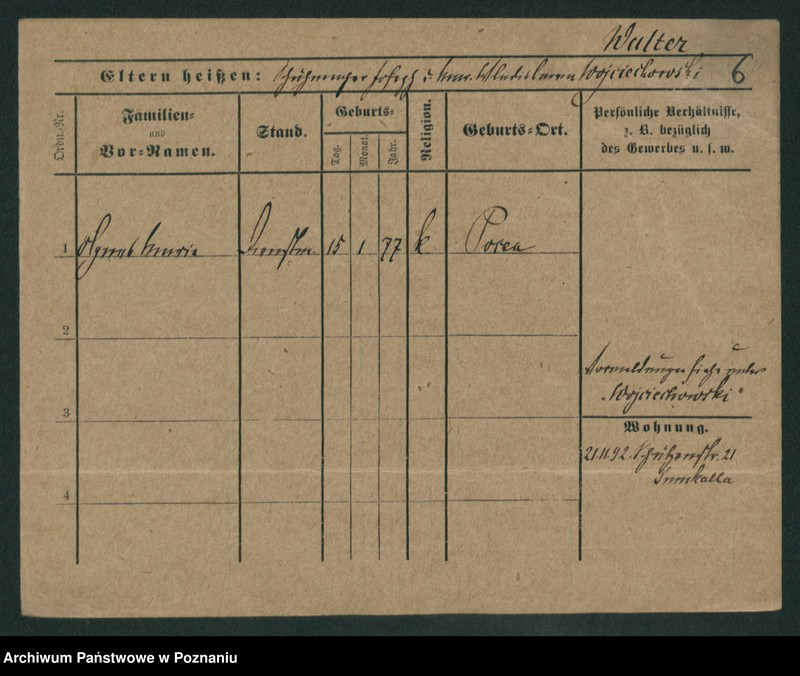 Walter
Eltern heißen: Schuhmacher Joseph u. Wojciechowski 6
Ordn.-Nr.
Familien-
und
Vor-Namen.
Stand.
Geburts-
Tag.
Monat.
Jahr.
Religion.
Geburts-Ort.
Persönliche Verhältnisse,
z. B. bezüglich
des Gewerbes u. s. w.
1 Agnes Maria Dienstm. 15 1 77 k Posen
2
Vormeldungen siehe unter
„Wojciechowski“
3
Wohnung.
21.11.92. Schützenstr. 21
4
Archiwum Państwowe w Poznaniu